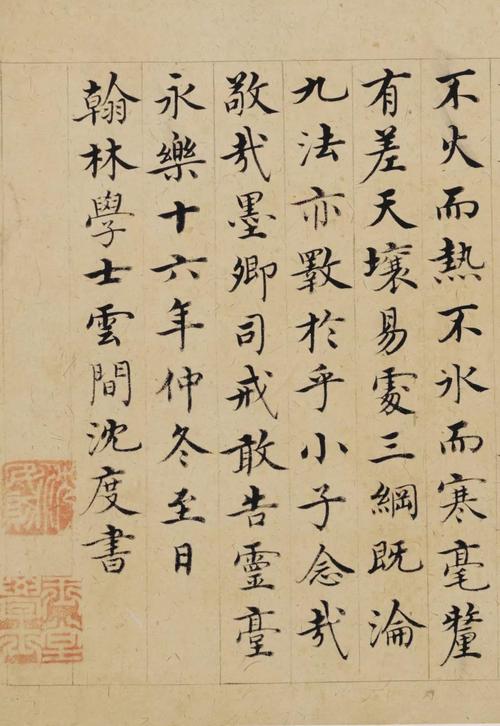 不火而熱不氷而寒毫釐
有差天壤易處三綱既淪
九法亦斁於乎小子念哉
敬哉墨卿司戒敢告靈臺
永樂十六年仲冬至日
翰林學士雲間沈度書